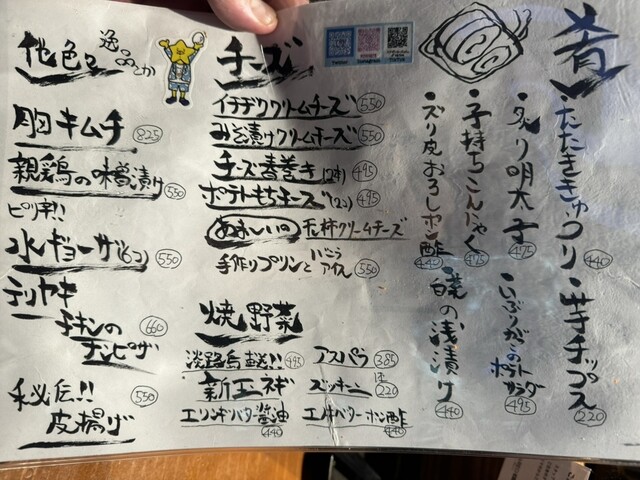 肴
・たたききゅうり 440
・芋チップス 220
・炙り明太子 495
・いぶりがっこのポテトサラダ 495
・子持ちこんにゃく 495
・ズリ皮おろしポン酢 440
の浅漬け 440
チーズ
イチヂククリームチーズ 550
みそ漬けクリームチーズ 550
チーズ春巻き(2本) 495
ポテトもちチーズ(2コ) 495
クリームチーズ
手作りプリンといごうアイス 550
焼野菜
淡路島 495
新玉ネギ
エリンギバター醤油 440
アスパラ 385
ズッキーニ 220
エノキバターポン酢 440
他色々
逸品とか
キムチ 825
親鶏の味噌漬け 550
ピリ辛!!
水ギョーザ(6コ) 550
テリヤキ
チキンの 660
チンピザ
秘伝!! 550
皮揚げ